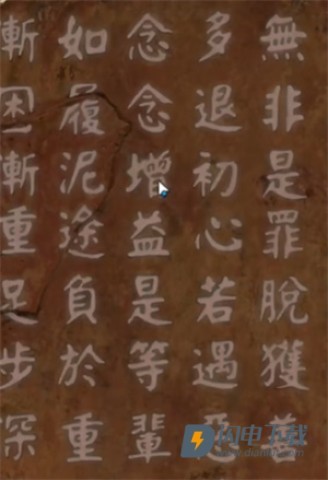 無非是罪脫獲善
多退初心若遇
念念增益是等輩
如履泥途負於重
漸困漸重足步深
闪电下载